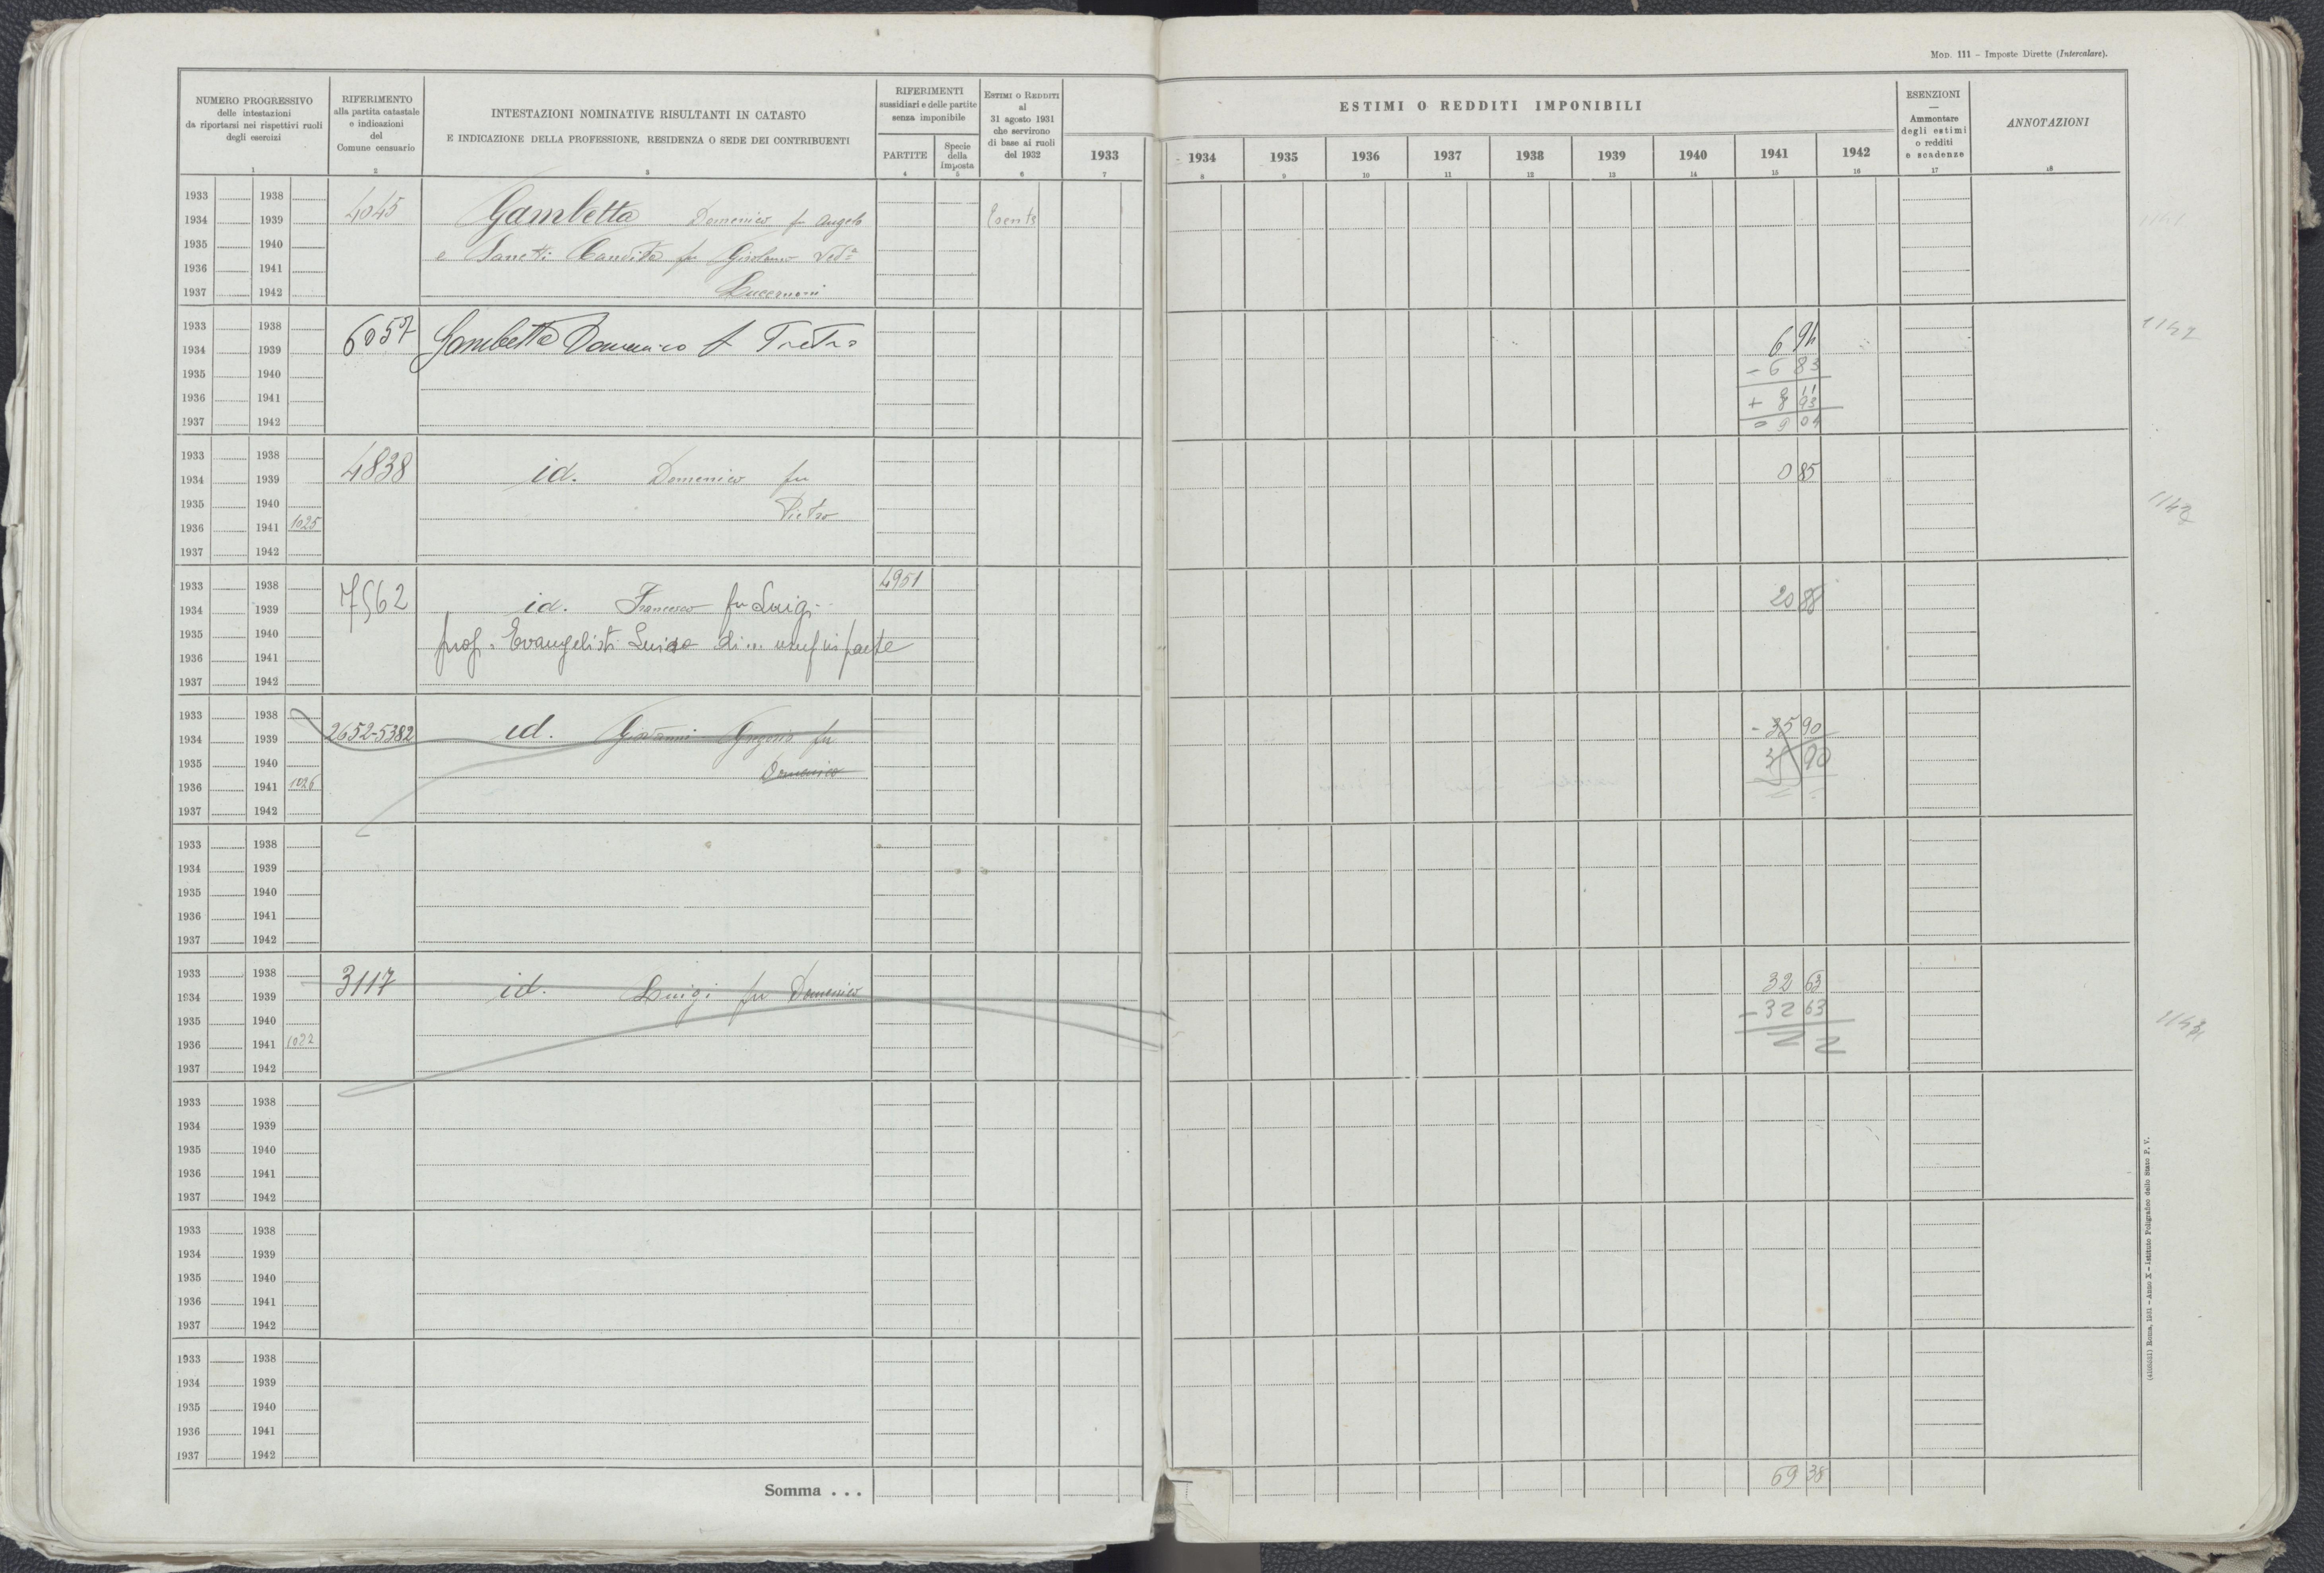 MOD. 111 - Imposte Dirette (Intercalare).
NUMERO PROGRESSIVO
delle intestazioni
da riportarsi nei rispettivi ruoli
degli esercizi
1
RIFERIMENTO
alla partita catastale
e indicazioni
del
Comune censuario
2
INTESTAZIONI NOMINATIVE RISULTANTI IN CATASTO
E INDICAZIONE DELLA PROFESSIONE, RESIDENZA O SEDE DEI CONTRIBUENTI
3
RIFERIMENTI
sussidiari e delle partite
senza imponibile
PARTITE
4
Specie
della
Imposta
5
ESTIMI O REDDITI
al
31 agosto 1931
che servirono
di base ai ruoli
del 1932
6
ESTIMI O REDDITI IMPONIBILI
1933 1934 1935 1936 1937 1938 1939 1940 1941 1942
7 8 9 10 11 12 13 14 15 16
ESENZIONI
—
Ammontare
degli estimi
o redditi
e scadenze
17
ANNOTAZIONI
18
1933 1938 4045 Gambetta Domenico fu Angelo Esente
1934 1939
1935 1940 e Sancti Candida fu Girolamo Ved.a
1936 1941
1937 1942 Lucernoni
1933 1938 6057 Gambetta Domenico f Pietro 1142
1934 1939 6 94
1935 1940 - 6 83
1936 1941 11
+ 8 93
1937 1942 9 04
1933 1938
1934 1939 4838 id. Domenico fu 0 85
1935 1940 Pietro
1936 1941 1025
1937 1942
1933 1938 4951
1934 1939 7562 id. Francesco fu Luigi 20 88
1935 1940 prof. Evangelisti Luisa di... usuf in parte
1936 1941
1937 1942
1933 1938 - 35 90
1934 1939 2652-5382 id. Giovanni Gregorio fu
1935 1940 Domenico 35 90
1936 1941 1026
1937 1942
1933 1938
1934 1939
1935 1940
1936 1941
1937 1942
1933 1938 32 63
1934 1939 3117 id. Luigi fu Domenico
1935 1940 - 32 63
1936 1941 1022
1937 1942
1933 1938
1934 1939
1935 1940
1936 1941
1937 1942
1933 1938
1934 1939
1935 1940
1936 1941
1937 1942
1933 1938
1934 1939
1935 1940
1936 1941
1937 1942
Somma . . . 69 38
(4105331) Roma, 1931 - Anno X - Istituto Poligrafico dello Stato P. V.